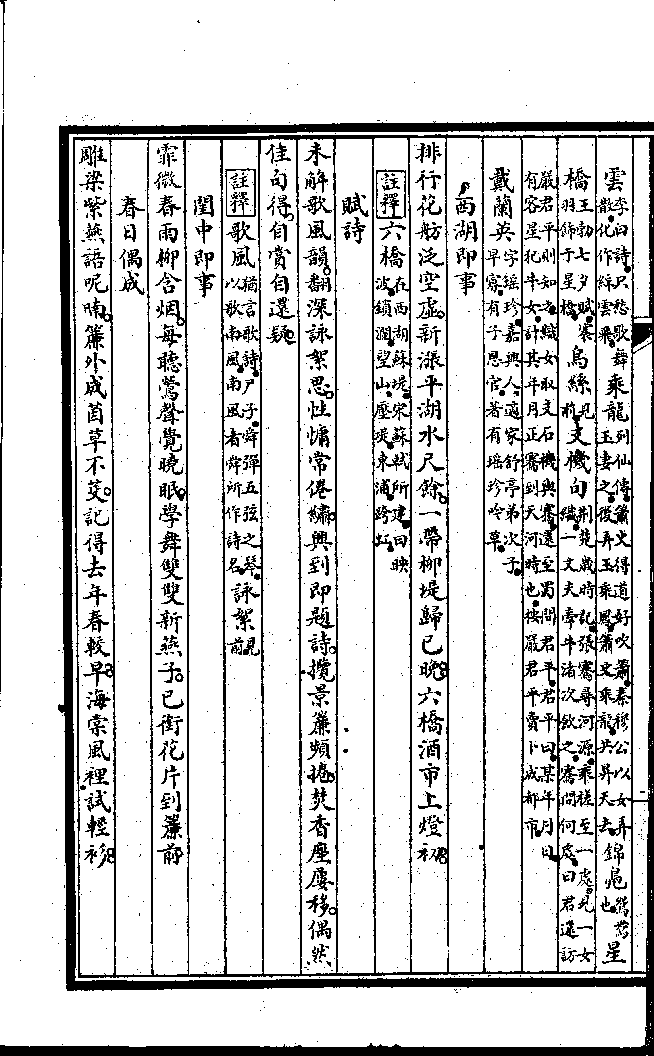 雲李白詩只愁歌舞散化作綵雲飛乘龍列仙傳簫史得道好吹簫秦穆公以女弄玉妻之後弄玉乘鳳簫史乘龍共昇天去錦鳧鴛鴦也星
橋王勃七夕賦羽飾于星橋烏絲見前支機句荊楚歲時記張騫尋河源乘槎至一處見一女織一丈夫牽牛渚次飲之騫問何處曰君還訪
嚴君平則知之織女取支石機與騫還至蜀問君平君平曰某年月日有客星犯牛女計其年月正騫到天河時也按嚴君平賣卜成都市
戴蘭英字瑤珍嘉興人適家舒亭弟次子早寡有子恩官著有瑤珍吟草
西湖即事
排行花舫泛空虛新漲平湖水尺餘一帶柳堤歸已晚六橋酒市上燈初
註釋六橋在西湖蘇堤宋蘇軾所建曰映波鎖瀾望山壓堤東浦跨虹
賦詩
未解歌風韻翻深詠絮思性慵常倦繡興到即題詩攬景簾頻捲焚香座屢移偶然
佳句得自賞自還疑
註釋歌風猶言歌詩尸子舜彈五弦之琴以歌南風南風者舜所作詩名詠絮見前
閨中即事
霏微春雨柳含烟每聽鶯聲覺曉眠學舞雙雙新燕子已銜花片到簾前
春日偶成
雕梁紫燕語呢喃簾外成茵草不芟記得去年春較早海棠風裡試輕衫